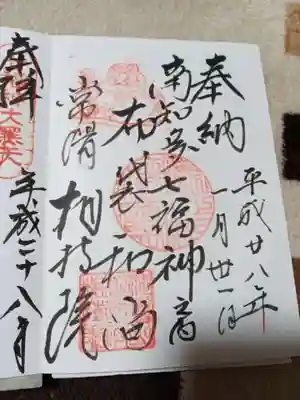 奉納
平成廿八年
一月丗一日
南知多七福神
布袋和尚
常滑
相持院
奉拝
大黒天
平成二十八年